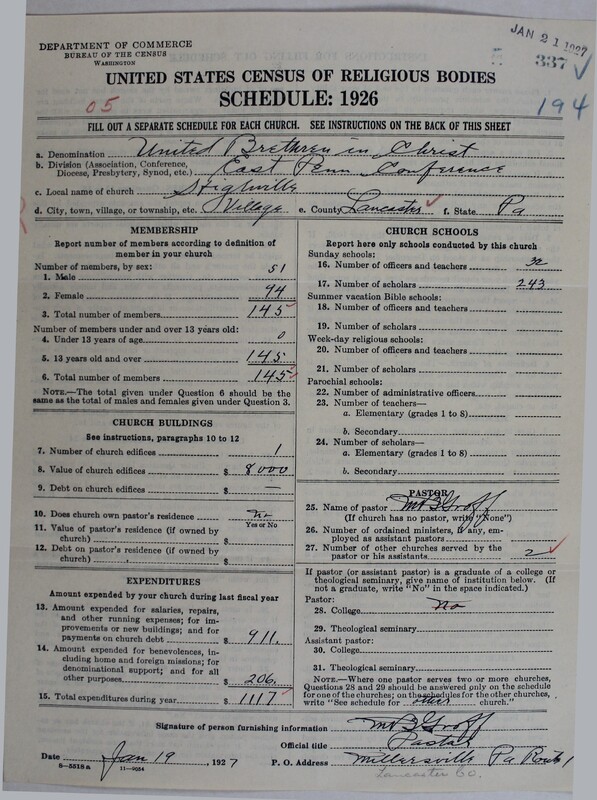 JAN 21 1927
DEPARTMENT OF COMMERCE
BUREAU OF THE CENSUS
WASHINGTON
337
UNITED STATES CENSUS OF RELIGIOUS BODIES
SCHEDULE: 1926
05
194
FILL OUT A SEPARATE SCHEDULE FOR EACH CHURCH. SEE INSTRUCTIONS ON THE BACK OF THIS SHEET
a. Denomination United Brethren in Christ
b. Division (Association, Conference, Diocese, Presbytery, Synod, etc.) East Penn Conference
c. Local name of church Stehlville
d. City, town, village, or township, etc. Village e. County Lancaster f. State Pa
MEMBERSHIP
Report number of members according to definition of
member in your church
Number of members, by sex:
1. Male 51
2. Female 94
3. Total number of members 145
Number of members under and over 13 years old:
4. Under 13 years of age 0
5. 13 years old and over 145
6. Total number of members 145
NOTE.—The total given under Question 6 should be the
same as the total of males and females given under Question 3.
CHURCH BUILDINGS
See instructions, paragraphs 10 to 12
7. Number of church edifices 1
8. Value of church edifices $ 8000
9. Debt on church edifices $ —
10. Does church own pastor's residence no
Yes or No
11. Value of pastor's residence (if owned by
church) $
12. Debt on pastor's residence (if owned by
church) $
EXPENDITURES
Amount expended by your church during last fiscal year
13. Amount expended for salaries, repairs,
and other running expenses; for im-
provements or new buildings; and for
payments on church debt $ 911.
14. Amount expended for benevolences, in-
cluding home and foreign missions; for
denominational support; and for all
other purposes $ 206.
15. Total expenditures during year $ 1117
CHURCH SCHOOLS
Report here only schools conducted by this church
Sunday schools:
16. Number of officers and teachers 32
17. Number of scholars 243
Summer vacation Bible schools:
18. Number of officers and teachers
19. Number of scholars
Week-day religious schools:
20. Number of officers and teachers
21. Number of scholars
Parochial schools:
22. Number of administrative officers
23. Number of teachers—
a. Elementary (grades 1 to 8)
b. Secondary
24. Number of scholars—
a. Elementary (grades 1 to 8)
b. Secondary
PASTOR
25. Name of pastor M B Groff
(If church has no pastor, write "None")
26. Number of ordained ministers, if any, em-
ployed as assistant pastors
27. Number of other churches served by the
pastor or his assistants 2
If pastor (or assistant pastor) is a graduate of a college or
theological seminary, give name of institution below. (If
not a graduate, write "No" in the space indicated.)
Pastor:
28. College no
29. Theological seminary
Assistant pastor:
30. College
31. Theological seminary
NOTE.—Where one pastor serves two or more churches,
Questions 28 and 29 should be answered only on the schedule
for one of the churches; on the schedules for the other churches,
write "See schedule for other church."
Signature of person furnishing information M B Groff
Official title Pastor
Date Jan 19, 1927 P. O. Address Millersville Pa Route 1
8—5518a 11—9054
Lancaster Co.